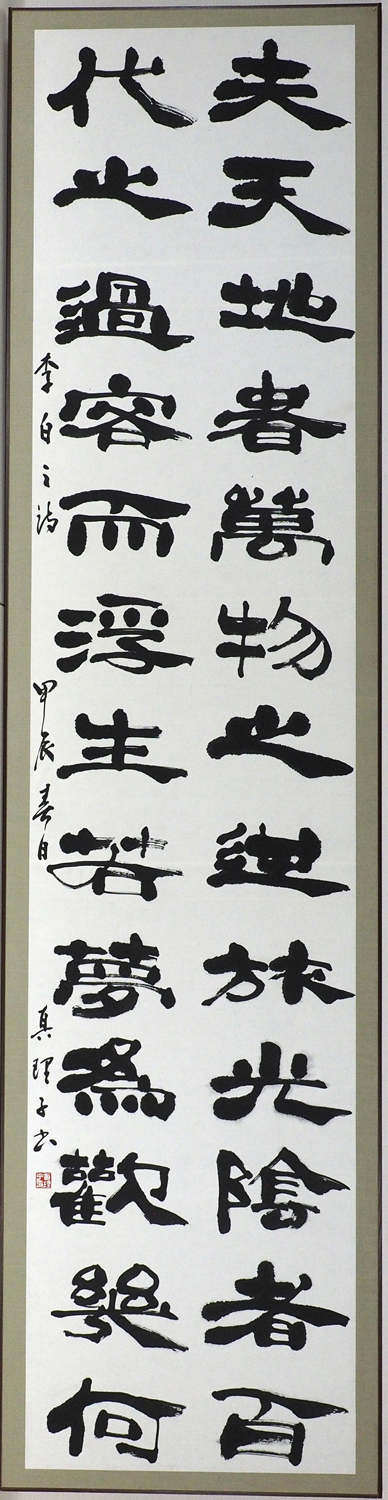 夫天地者萬物之逆旅光陰者百
代之過容而浮生若夢為歡幾何
李白之詩 甲辰春日 真理子書